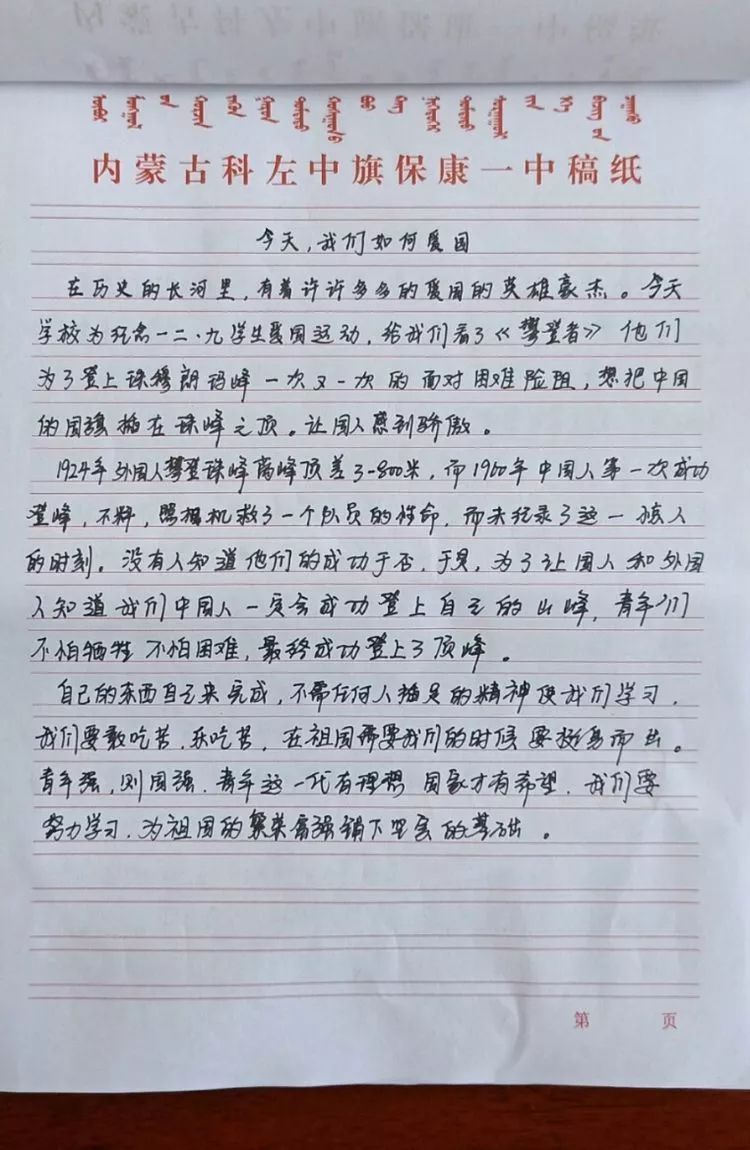 内蒙古科左中旗保康一中稿纸
今天,我们如何爱国
在历史的长河里,有着许许多多的爱国的英雄豪杰。今天
学校为纪念一二·九学生爱国运动,给我们看了《攀登者》他们
为了登上珠穆朗玛峰一次又一次的面对困难险阻,想把中国
的国旗插在珠峰之顶。让国人感到骄傲。
1924年外国人攀登珠峰离峰顶差了800米,而1960年中国人第一次成功
登峰,不料,照相机救了一个队员的性命,而未纪录了这一
的时刻。没有人知道他们的成功于否,于是,为了让国人和外国
人知道我们中国人一定会成功登上自己的山峰,青年们
不怕牺牲 不怕困难,最终成功登上了顶峰。
自己的东西自己来完成,不需任何人插足的精神使我们学习,
我们要敢吃苦,乐吃苦,在祖国需要我们的时候要挺身而出。
青年强,则国强,青年这一代有理想 国家才有希望,我们要
努力学习,为祖国的繁荣富强铺下坚实的基础。
第 页